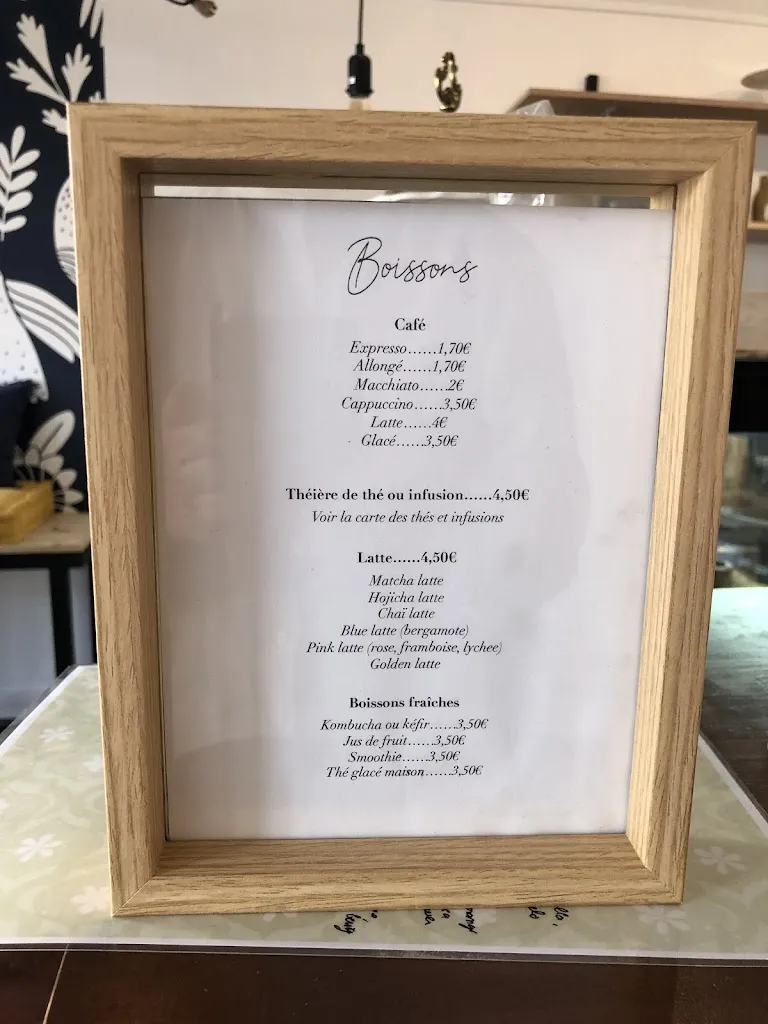 Boissons
Café
Expresso......1,70€
Allongé......1,70€
Macchiato......2€
Cappuccino......3,50€
Latte......4€
Glacé......3,50€
Théière de thé ou infusion......4,50€
Voir la carte des thés et infusions
Latte......4,50€
Matcha latte
Hojicha latte
Chaï latte
Blue latte (bergamote)
Pink latte (rose, framboise, lychee)
Golden latte
Boissons fraîches
Kombucha ou kéfir......3,50€
Jus de fruit......3,50€
Smoothie......3,50€
Thé glacé maison......3,50€